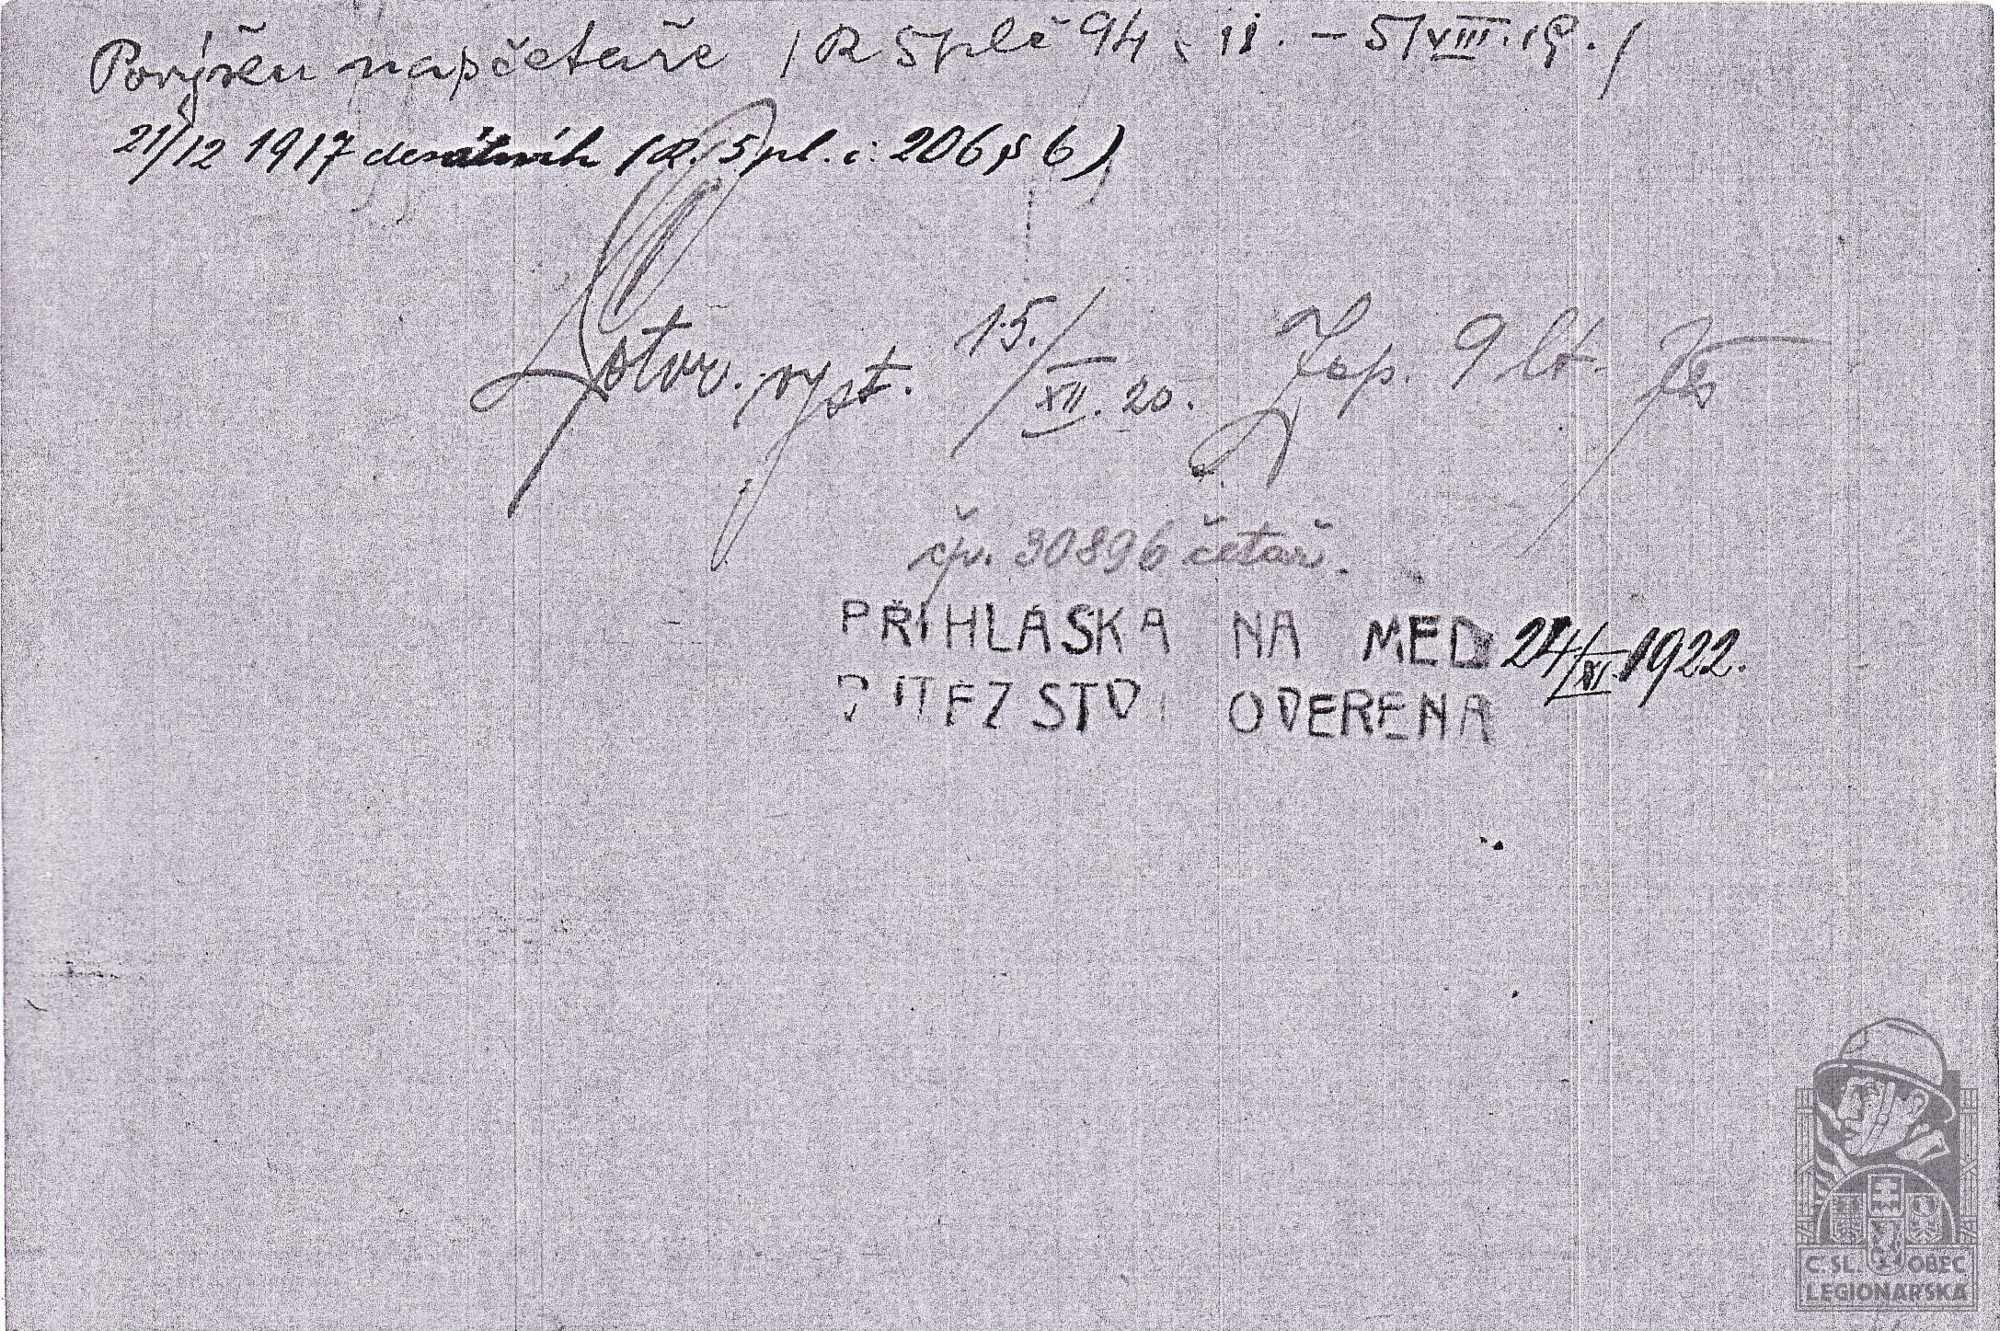 Povýšen na četaře /R 5 pl č 94 § 11. – 5/VIII.19./
21/12 1917 desátník (R. 5 pl. č. 206 § 6)
Potvr. vyst. 15./XII. 20. Zap. 9 lt.
čp. 30896 četař.
PŘIHLÁSKA NA MED 24/XI. 1922.
VITEZSTVI OVERENA
Č. SL. OBEC
LEGIONÁŘSKÁ